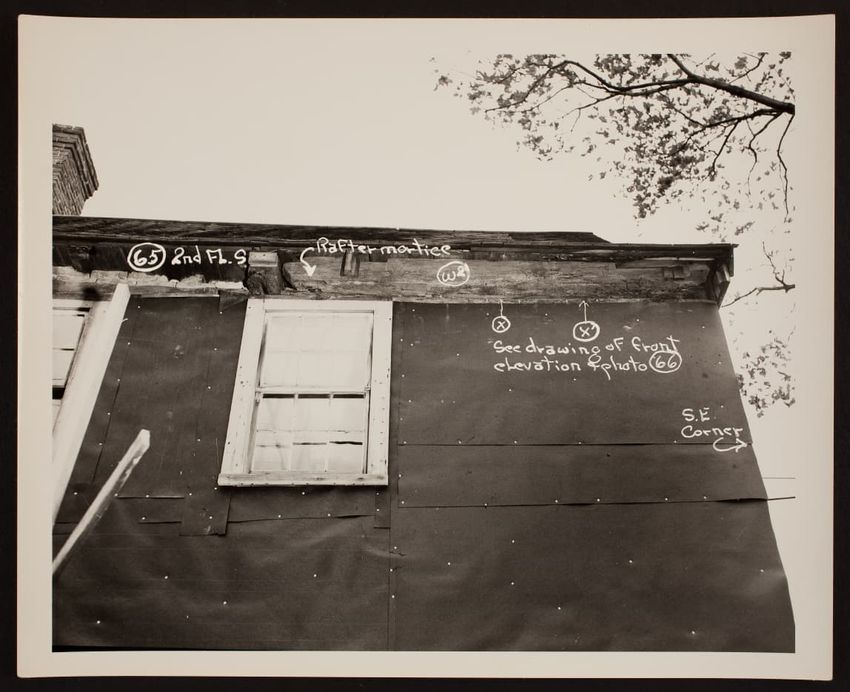 65 2nd FL. S
Rafter mortice
W8
X X'
See drawing of front
elevation & photo 66
S.E.
Corner